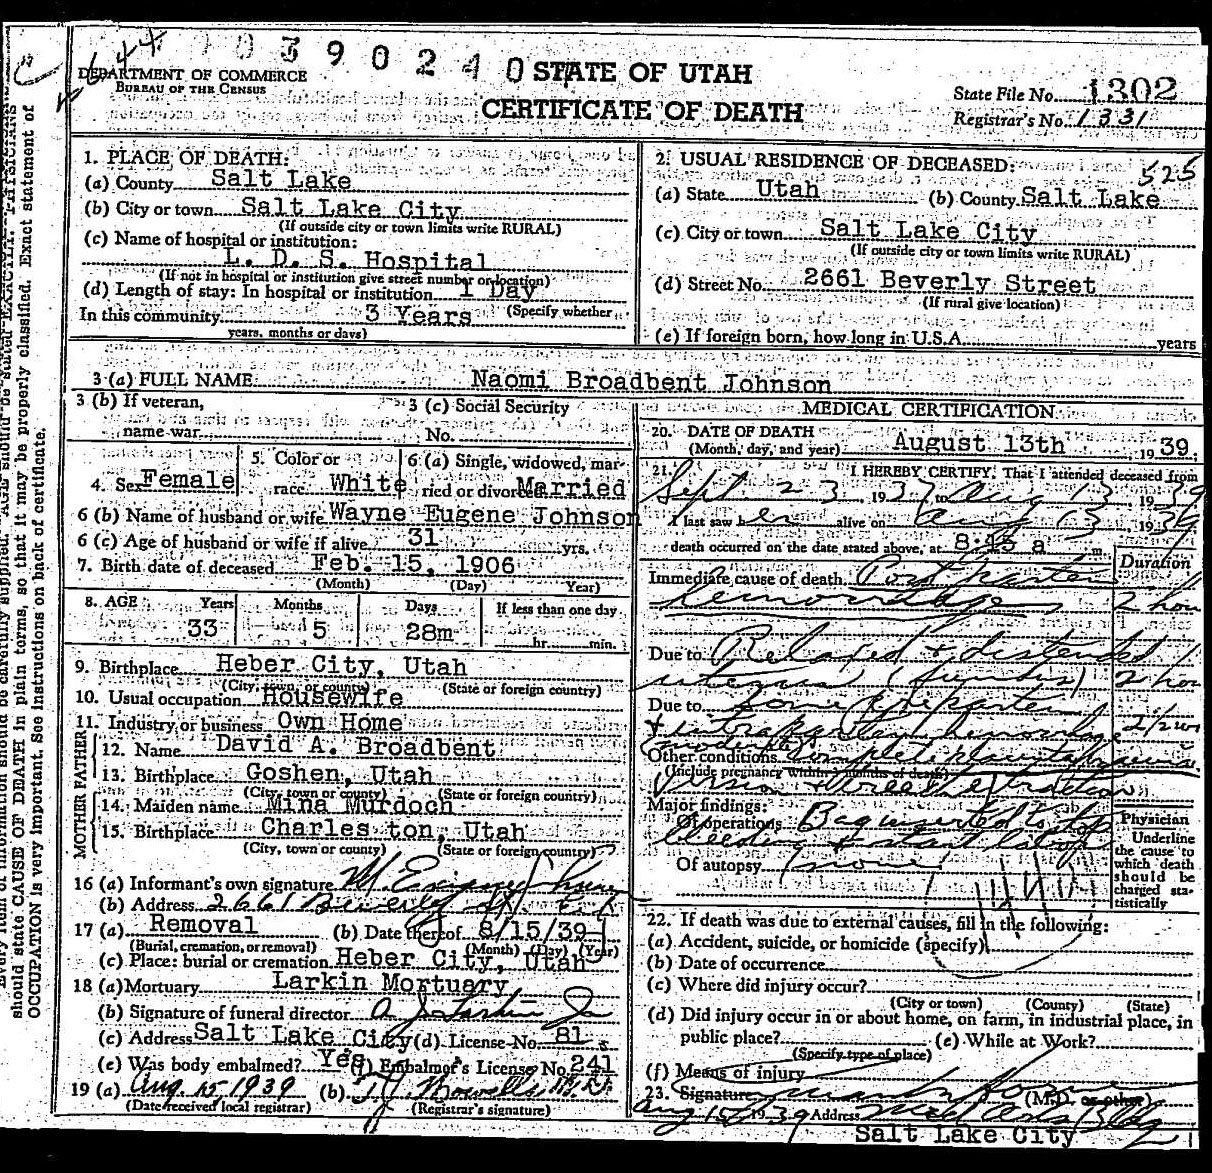 0390240
DEPARTMENT OF COMMERCE
BUREAU OF THE CENSUS
STATE OF UTAH
CERTIFICATE OF DEATH
State File No. 1302
Registrar's No. 1331
1. PLACE OF DEATH:
(a) County Salt Lake
(b) City or town Salt Lake City
(If outside city or town limits write RURAL)
(c) Name of hospital or institution:
L. D. S. Hospital
(If not in hospital or institution give street number or location)
(d) Length of stay: In hospital or institution 1 Day
In this community 3 Years (Specify whether
years, months or days)
2. USUAL RESIDENCE OF DECEASED: 525
(a) State Utah (b) County Salt Lake
(c) City or town Salt Lake City
(If outside city or town limits write RURAL)
(d) Street No. 2661 Beverly Street
(If rural give location)
(e) If foreign born, how long in U.S.A. years
3 (a) FULL NAME Naomi Broadbent Johnson
3 (b) If veteran, 3 (c) Social Security
name war No.
4. Sex Female 5. Color or race White 6 (a) Single, widowed, married or divorced Married
6 (b) Name of husband or wife Wayne Eugene Johnson
6 (c) Age of husband or wife if alive 31 yrs.
7. Birth date of deceased Feb. 15, 1906
(Month) (Day) Year)
8. AGE Years Months Days If less than one day
33 5 28m hr. min.
9. Birthplace Heber City, Utah
(City, town or county) (State or foreign country)
10. Usual occupation Housewife
11. Industry or business Own Home
FATHER
12. Name David A. Broadbent
13. Birthplace Goshen, Utah
(City, town or county) (State or foreign country)
MOTHER
14. Maiden name Mina Murdoch
15. Birthplace Charles ton, Utah
(City, town or county) (State or foreign country)
16 (a) Informant's own signature
(b) Address 2661 Beverly St
17 (a) Removal (b) Date thereof 8/15/39
(Burial, cremation, or removal) (Month) (Day) (Year)
(c) Place: burial or cremation Heber City, Utah
18 (a) Mortuary Larkin Mortuary
(b) Signature of funeral director
(c) Address Salt Lake City (d) License No. 81
(e) Was body embalmed? Yes (f) Embalmer's License No. 241
19 (a) Aug 15, 1939 (b)
(Date received local registrar) (Registrar's signature)
MEDICAL CERTIFICATION
20. DATE OF DEATH August 13th 1939
(Month, day, and year)
21. I HEREBY CERTIFY, That I attended deceased from
Sept 23, 1937 to Aug 13 1939
I last saw her alive on Aug 13, 1939
death occurred on the date stated above, at 8:45 a m.
Duration
Immediate cause of death Post partem
hemorrhage 2 hou
Due to Relaxed + distended
uterus (fundis) 2 hou
Due to some partem
+ intrapartem hemorrhage
Other conditions complete placenta previa
(Include pregnancy within 3 months of death)
Version + breech extraction
Major findings:
Of operations Bag inserted to stop
bleeding + start labor
Of autopsy none
Physician
Underline
the cause to
which death
should be
charged sta-
tistically
22. If death was due to external causes, fill in the following:
(a) Accident, suicide, or homicide (specify)
(b) Date of occurrence
(c) Where did injury occur?
(City or town) (County) (State)
(d) Did injury occur in or about home, on farm, in industrial place, in
public place? (e) While at Work?
(Specify type of place)
(f) Means of injury
23. Signature (M.D. or other)
Aug 15 1939 Address Med Arts Bldg
Salt Lake City
should state CAUSE OF DEATH in plain terms, so that it may be properly classified. Exact statement of
OCCUPATION is very important. See instructions on back of certificate.